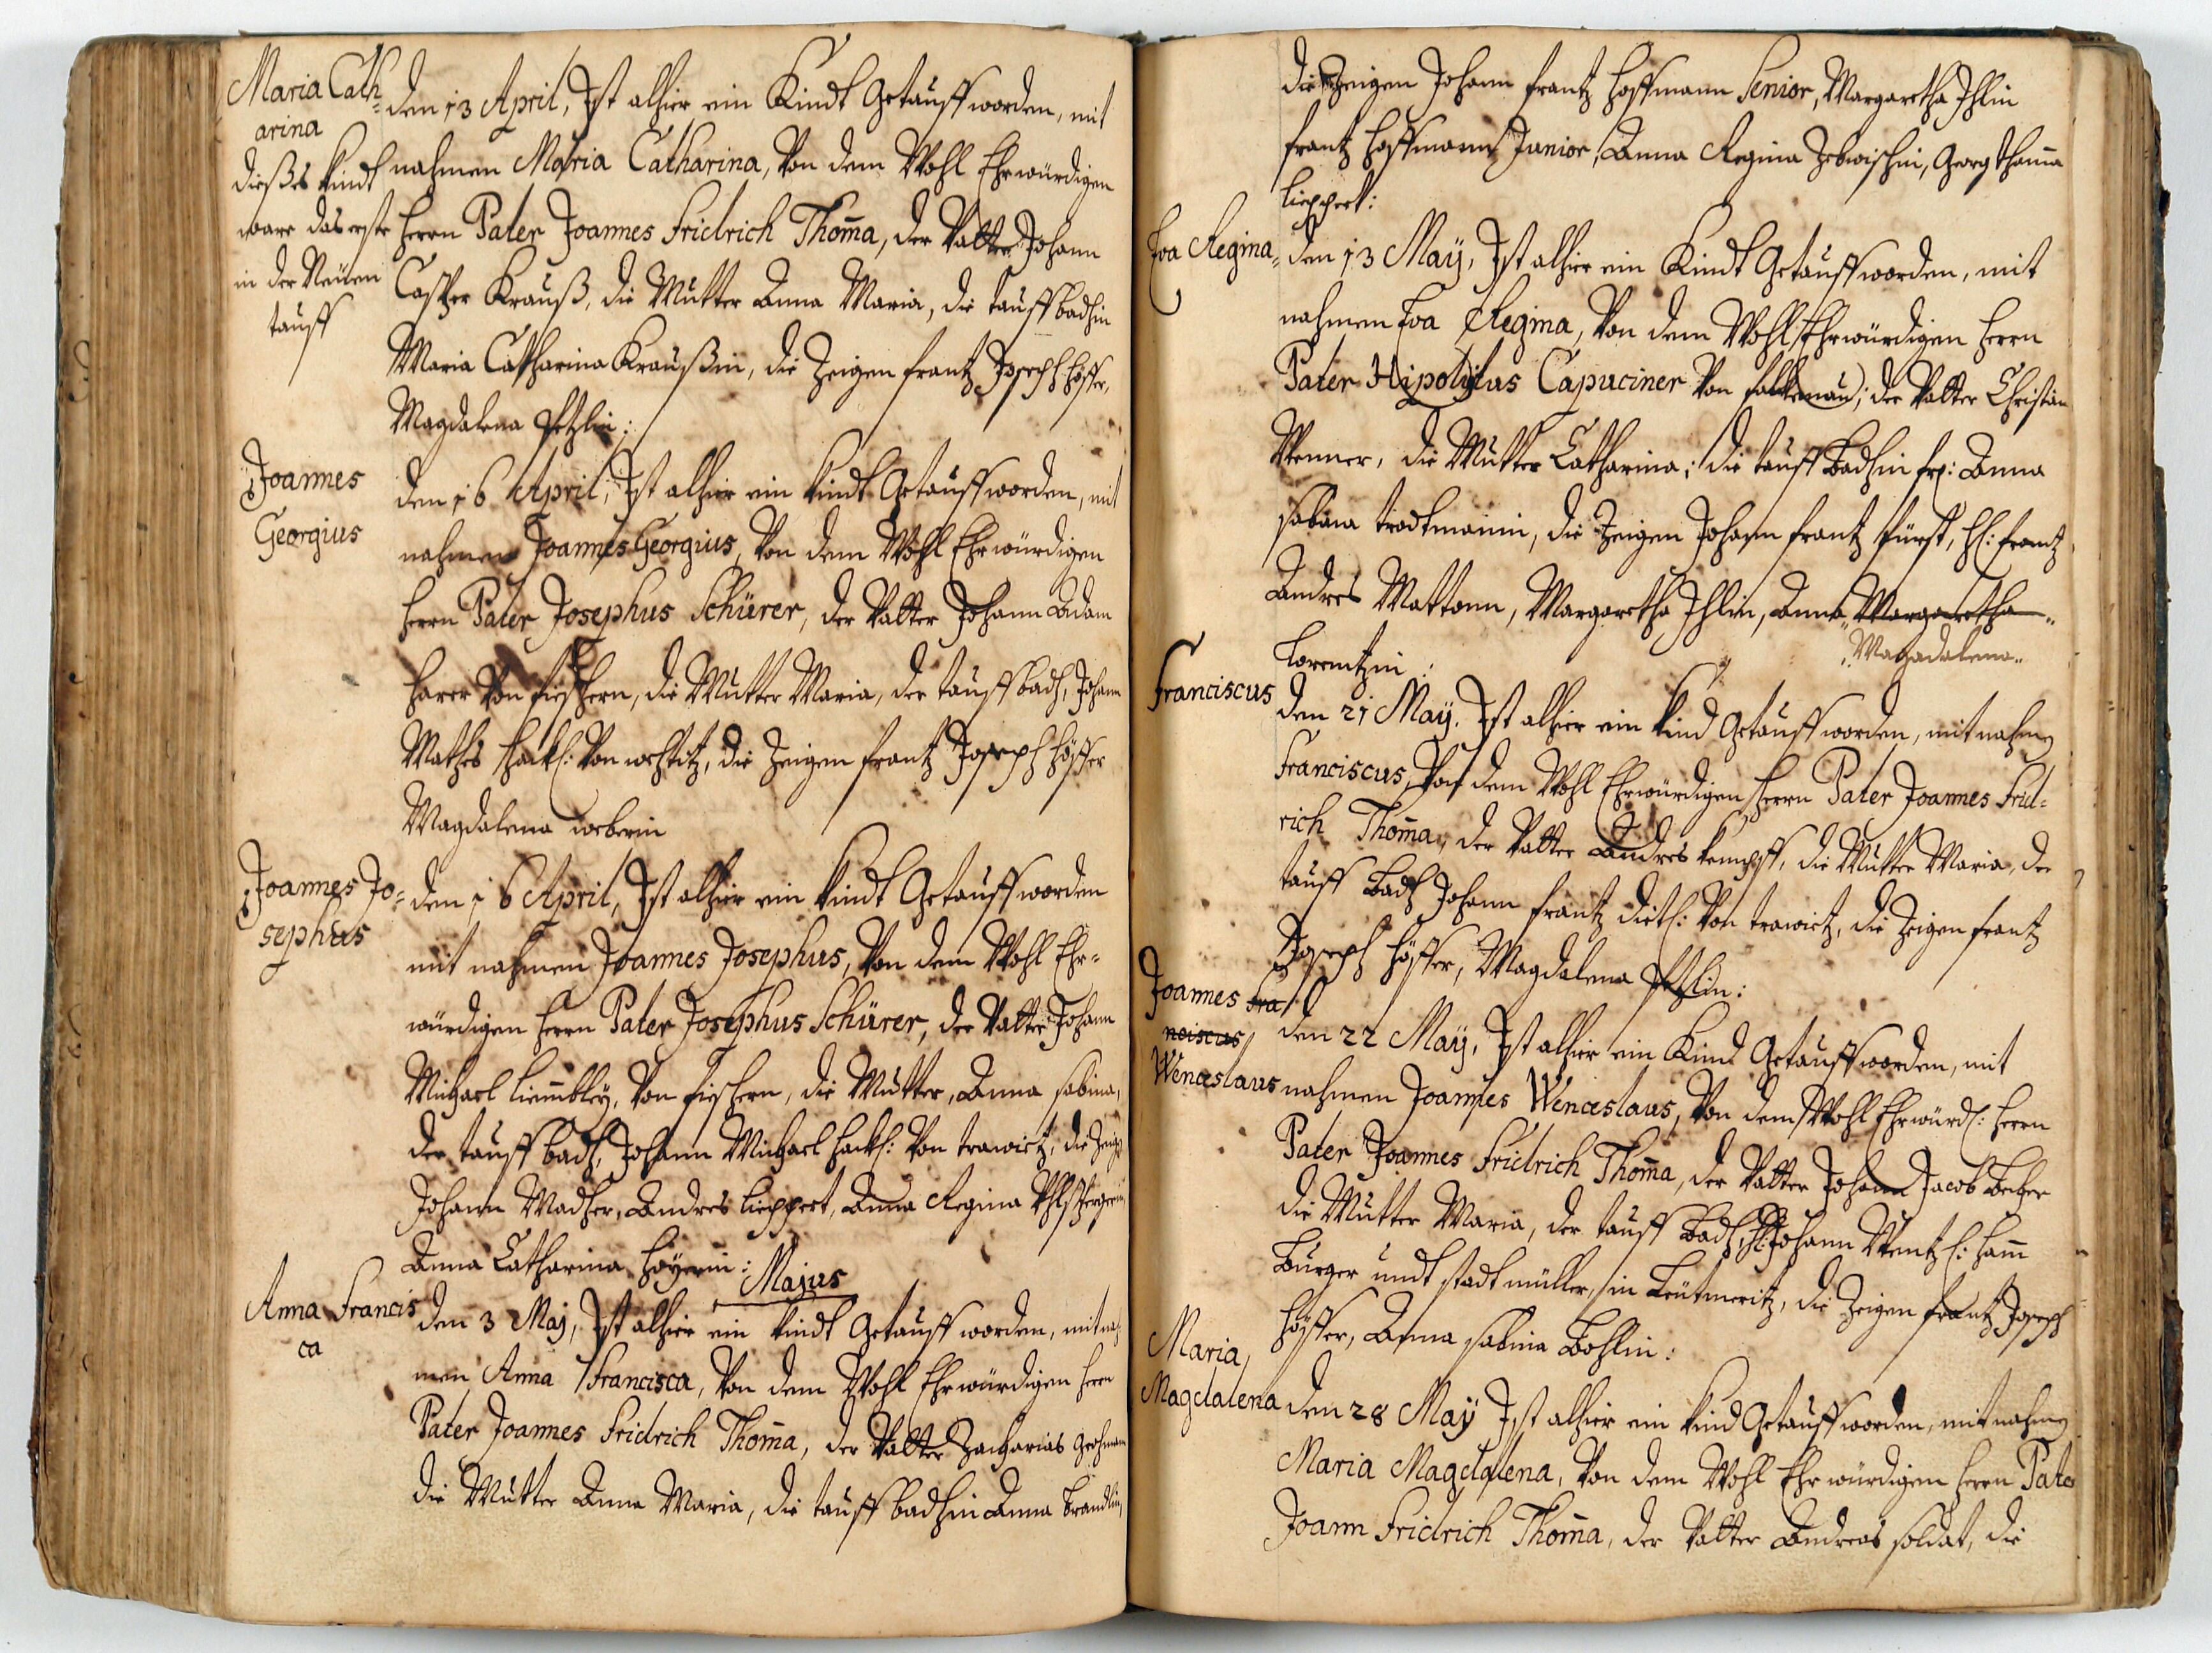 Maria Cath=
arina
dießes Kindt
ware das erste
in der Neüen
tauff
den 13 April, Ist alhier ein Kindt Getaufft worden, mit
nahmen Maria Catharina, Von dem Wohl Ehrwürdigen
Herrn Pater Joannes Fridrich Thom̄a, der Vatter Johann
Casper Krauß, die Mutter Anna Maria, die tauff bathin
Maria Catharina Kraußin, die Zeigen frantz Joseph Höffer,
Magdalena
Joannes
Georgius
den 16 April, Ist alhier ein Kindt Getaufft worden, mit
nahmen Joannes Georgius, Von dem Wohl Ehrwürdigen
Herrn Pater Josephus Schürer, der Vatter Johann Adam
Von fischern, die Mutter Maria, der tauff bath, Johann
Mathes Von die Zeigen frantz Joseph Höffer
Magdalena weberin
Joannes Jo=
sephus
den 16 April, Ist alhier ein Kindt Getaufft worden
mit nahmen Joannes Josephus, Von dem Wohl Ehr=
würdigen Herrn Pater Josephus Schürer, der Vatter Johann
Michael Von fischern, die Mutter, Anna sabina,
der tauff bath, Johann Michael Von trawitz, die Zeigen
Johann Andres lippert, Anna Regina
Anna Catharina Höyerin:
Majus
Anna Francis
ca
den 3 Maj, Ist alhier ein Kindt Getaufft worden, mit nah
men Anna Francisca, Von dem Wohl Ehrwürdigen Herrn
Pater Joannes Fridrich Thom̄a, der Vatter Zacharias
die Mutter Anna Maria, die tauff bathin Anna
die Zeigen Johann frantz Hoffmann Senior, Margaretha Ihlin
frantz Hoffmann Junior, Anna Regina Georg
lippert:
Eva Regina
den 13 Maÿ, Ist alhier ein Kindt Getaufft worden, mit
nahmen Eva Regina, Von dem Wohl Ehrwürdigen Herrn
Pater Hipolijtus Capuciner Von falkenau, der Vatter Christian
Wenner, die Mutter Catharina; die tauff Bathin Anna
sabina die Zeigen Johann frantz fürst, frantz
Andres Mattoni, Margaretha Ihlin, Anna Margaretha
Magadalena
Lorentzin:
Franciscus
den 21 Maÿ. Ist alhier ein Kind Getaufft worden, mit nahmen
Franciscus, Von dem Wohl Ehrwürdigen Herrn Pater Joannes Frid=
rich Thom̄a, der Vatter Andres die Mutter Maria, der
tauff Bath Johann frantz Von trawitz, die Zeigen frantz
Joseph Höffer, Magdalena
Joannes Fra
nciscus
Wenceslaus
den 22 Maÿ, Ist alhier ein Kind Getaufft worden, mit
nahmen Joannes Wenceslaus, Von dem Wohl Ehrwürd: Herrn
Pater Joannes Fridrich Thom̄a, der Vatter Johann Jacob
die Mutter Maria, der tauff Bath, Johann Wentzl:
Bürger undt stadt müller, in Leütmeritz, die Zeigen frantz Joseph
Höffer, Anna sabina
Maria
Magdalena
den 28 Maÿ Ist alhier ein Kind Getaufft worden, mit nahmen
Maria Magdalena, Von dem Wohl Ehrwürdigen Herrn Pater
Joann Fridrich Thom̄a, der Vatter Andreas soldat, die